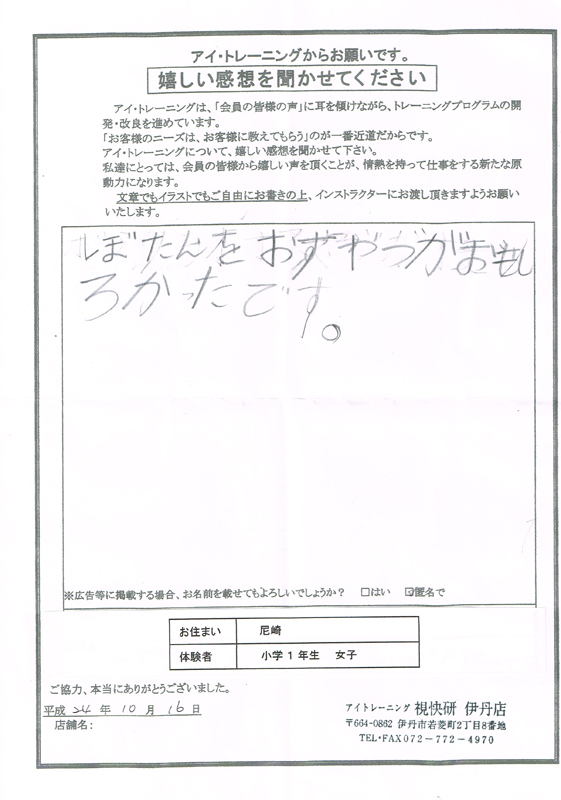 アイ・トレーニングからお願いです。
嬉しい感想を聞かせてください
アイ・トレーニングは、「会員の皆様の声」に耳を傾けながら、トレーニングプログラムの開
発・改良を進めています。
「お客様のニーズは、お客様に教えてもらう」のが一番近道だからです。
アイ・トレーニングについて、嬉しい感想を聞かせて下さい。
私達にとっては、会員の皆様から嬉しい声を頂くことが、情熱を持って仕事をする新たな原
動力になります。
文章でもイラストでもご自由にお書きの上、インストラクターにお渡し頂きますようお願い
いたします。
ぼたんをおすやつがおもし
ろかったです。
※広告等に掲載する場合、お名前を載せてもよろしいでしょうか? □はい ☑匿名で
お住まい 尼崎
体験者 小学1年生 女子
ご協力、本当にありがとうございました。
平成 24 年 10 月 16 日
店舗名:
アイトレーニング 視快研 伊丹店
〒664-0862 伊丹市若菱町2丁目8番地
TEL・FAX072-772-4970